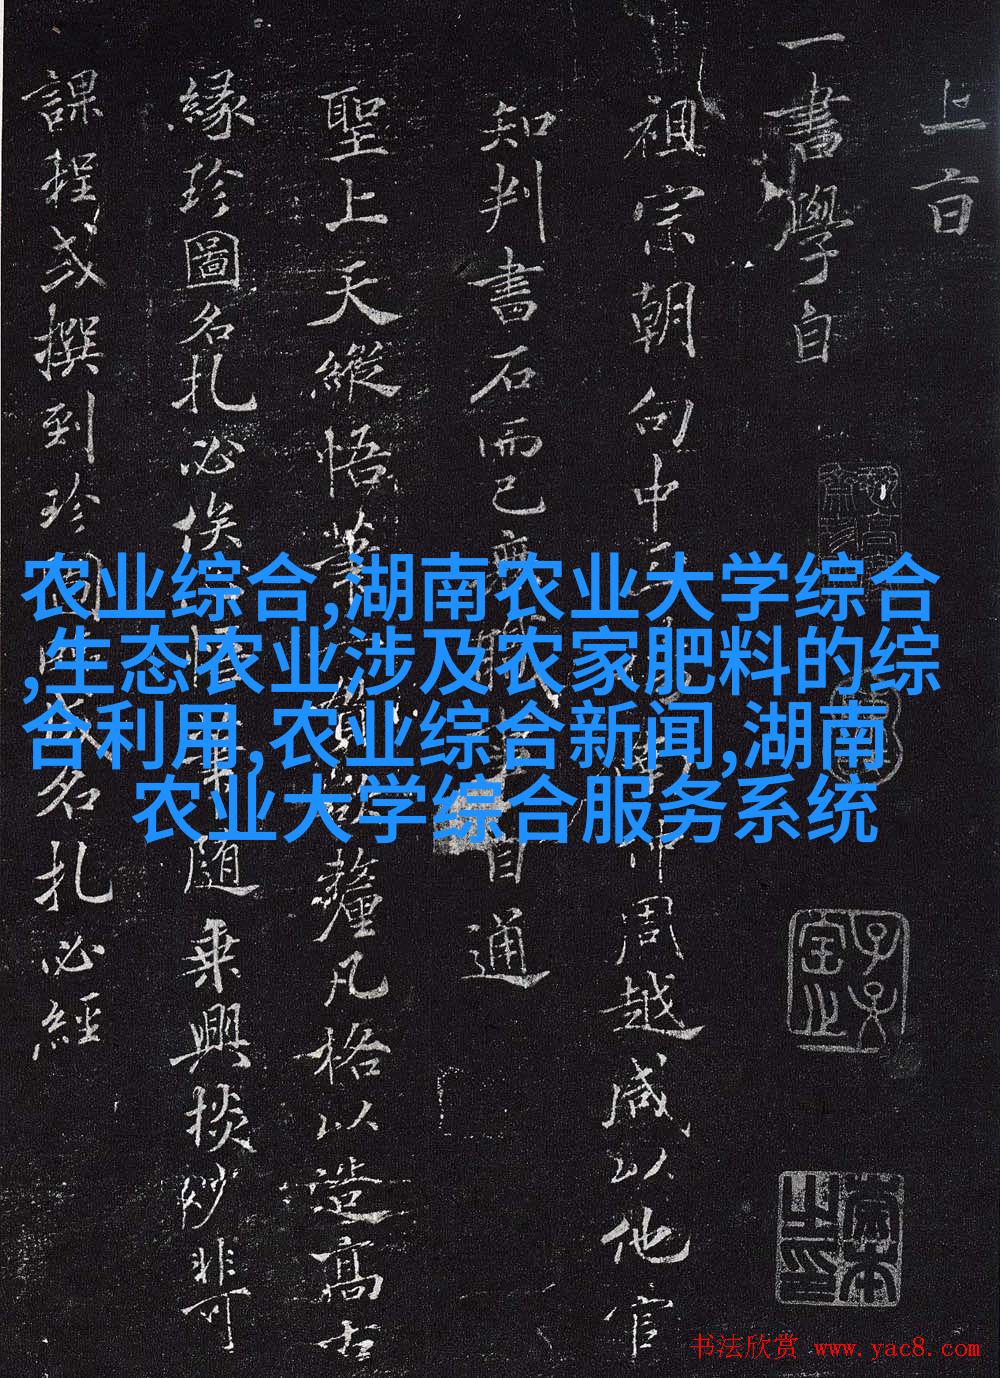 上
一書學自
祖宗朝向中周越咸以他官
知判書石而已無自通
聖上天縱悟筆釐凡格以造髙古
緣珍圖名札必俟隨乗興掞妙非可
課程或撰到珍圖名札必經
农业综合,湖南农业大学综合
,生态农业涉及农家肥料的综
合利用,农业综合新闻,湖南
农业大学综合服务系统
书法欣赏 www.yac8.com